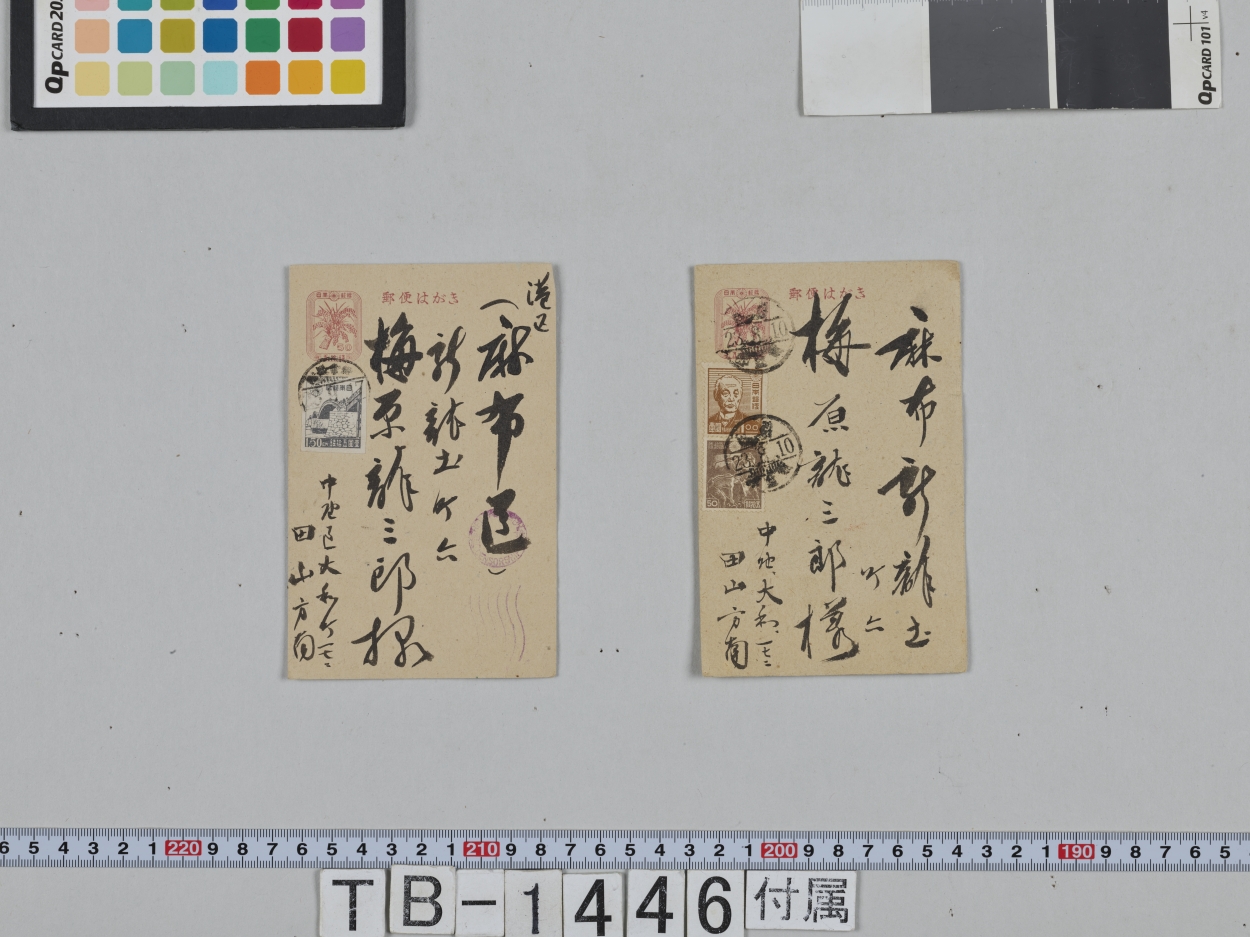 QpCARD 20
QpCARD 101 v4
郵便はがき
港区
(麻布区)
新龍土町六
梅原龍三郎様
中野区大和町一七二
田山方南
日本郵便
1.50
郵便はがき
麻布新龍土
町六
梅原龍三郎様
中野、大和、一七二
田山方南
日本郵便
1.00
50
23.8.10
23.8.10
6 5 4 3 2 1 220 9 8 7 6 5 4 3 2 1 210 9 8 7 6 5 4 3 2 1 200 9 8 7 6 5 4 3 2 1 190 9 8 7 6 5
TB-1446付属